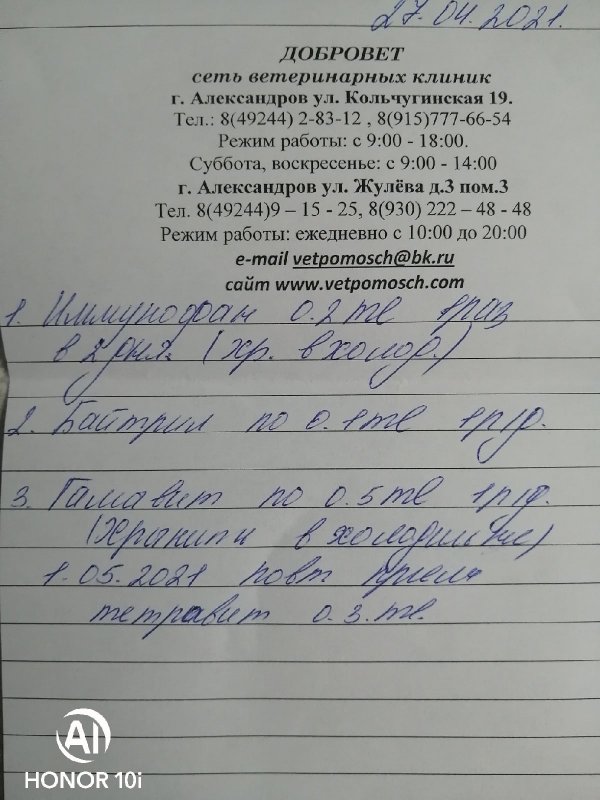 27.04.2021.
ДОБРОВЕТ
сеть ветеринарных клиник
г. Александров ул. Кольчугинская 19.
Тел.: 8(49244) 2-83-12 , 8(915)777-66-54
Режим работы: с 9:00 - 18:00.
Суббота, воскресенье: с 9:00 - 14:00
г. Александров ул. Жулёва д.3 пом.3
Тел. 8(49244)9 – 15 - 25, 8(930) 222 – 48 - 48
Режим работы: ежедневно с 10:00 до 20:00
e-mail vetpomosch@bk.ru
сайт www.vetpomosch.com
1. Иммунофан 0.2 ml 1раз
в 2 дня. (хр. в холод.)
2. Байтрил по 0.1 ml 1р/д.
3. Гамавит по 0.5 ml 1р/д.
(Хранить в холодильнике)
1.05.2021 повт прием
тетравит 0.3. ml.
AI
HONOR 10i